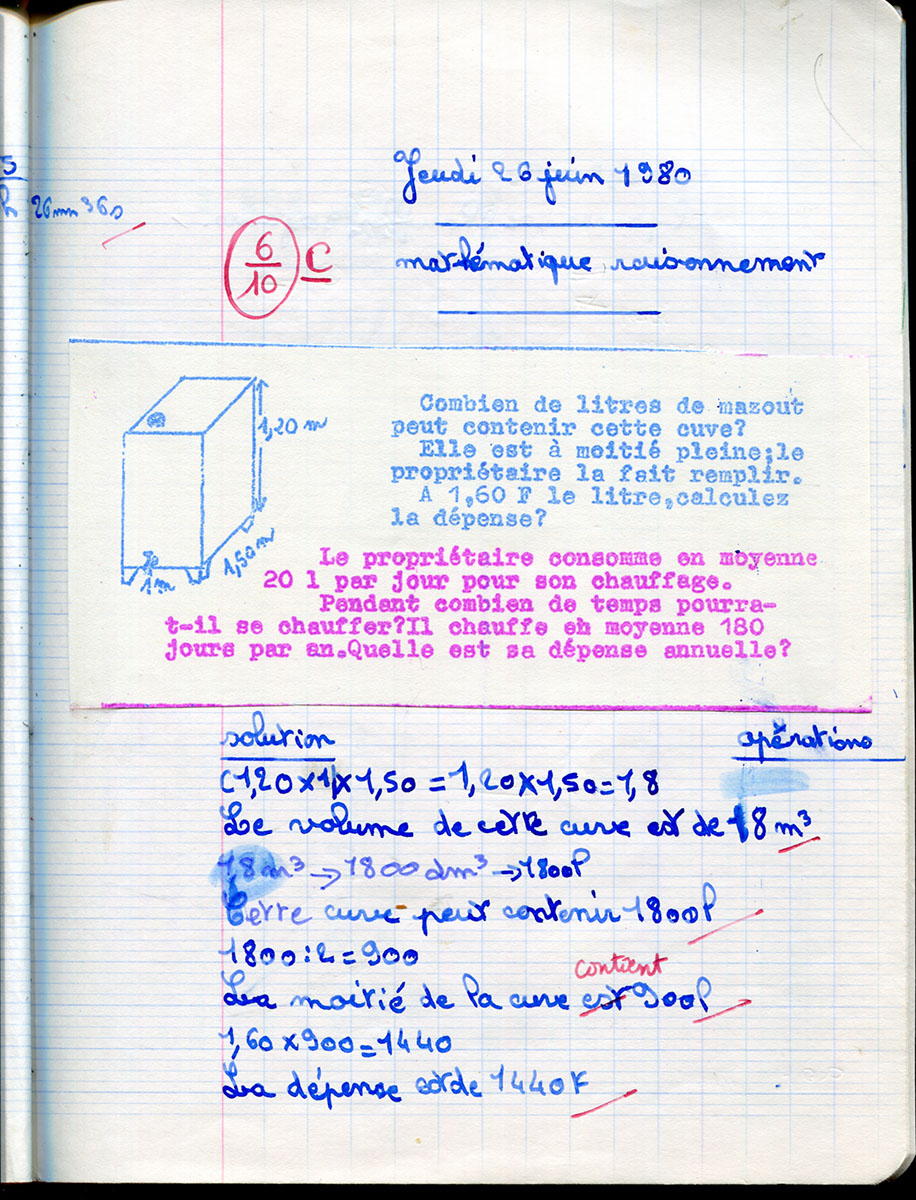 5
h 26mn 36s
Jeudi 26 juin 1980
6/10 C
mathématique raisonnement
1,20 m
1,50m
1m
Combien de litres de mazout
peut contenir cette cuve?
Elle est à moitié pleine;le
propriétaire la fait remplir.
A 1,60 F le litre,calculez
la dépense?
Le propriétaire consomme en moyenne
20 l par jour pour son chauffage.
Pendant combien de temps pourra-
t-il se chauffer?Il chauffe en moyenne 180
jours par an.Quelle est sa dépense annuelle?
solution
opérations
(1,20×1)×1,50 = 1,20×1,50=1,8
Le volume de cette cuve est de 1,8 m³
1,8 m³ → 1800 dm³ → 1800l
Cette cuve peut contenir 1800l
1800:2=900
contient
La moitié de la cuve est 900l
1,60×900=1440
La dépense est de 1440F